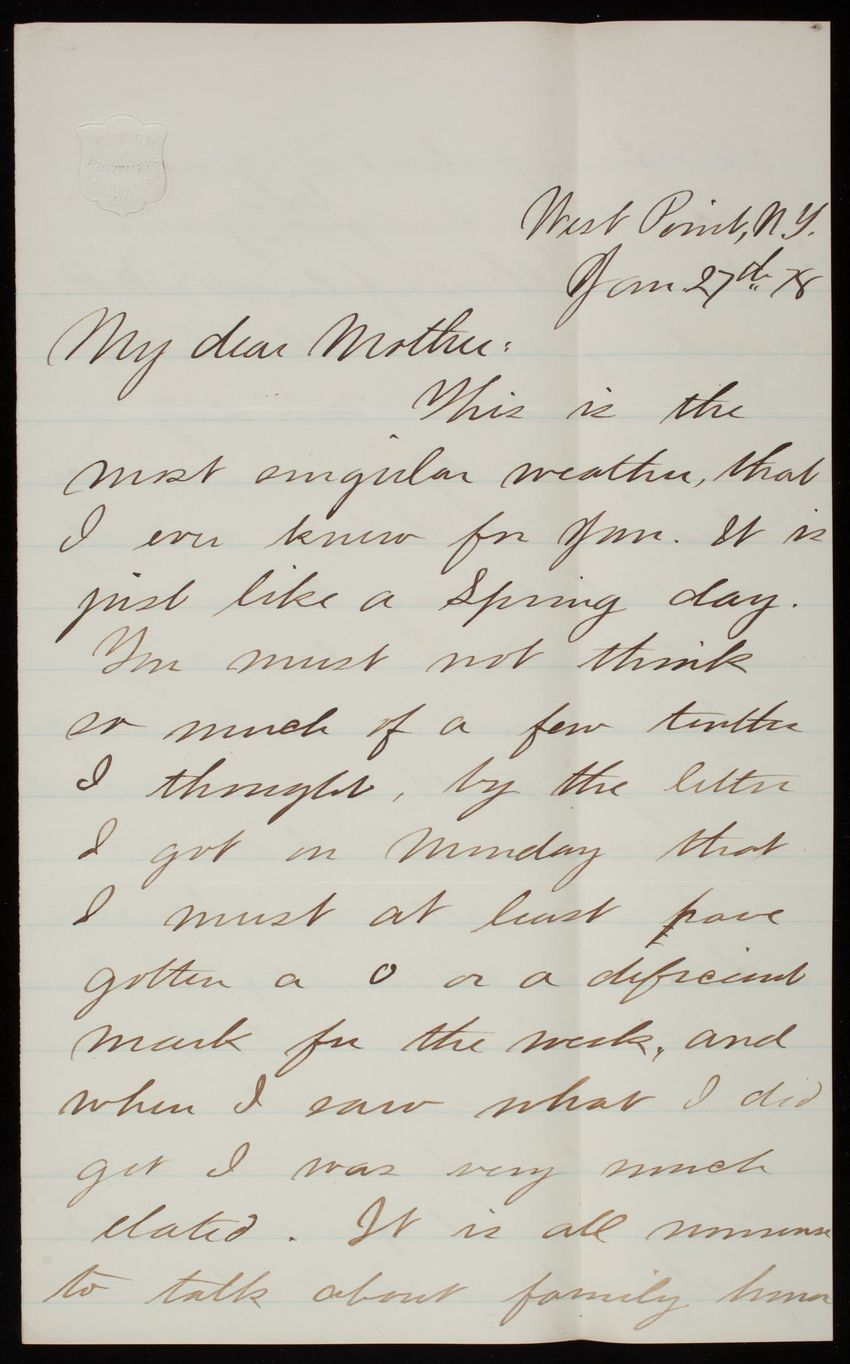 West Point, N.Y.
Jan 27th 78
My dear Mother:
This is the
most singular weather, that
I ever knew for Jan. It is
just like a Spring day.
You must not think
so much of a few tenths
I thought, by the letter
I got on Monday that
I must at least have
gotten a 0 or a deficient
mark for the week, and
when I saw what I did
get I was very much
elated. It is all nonsense
to talk about family honor